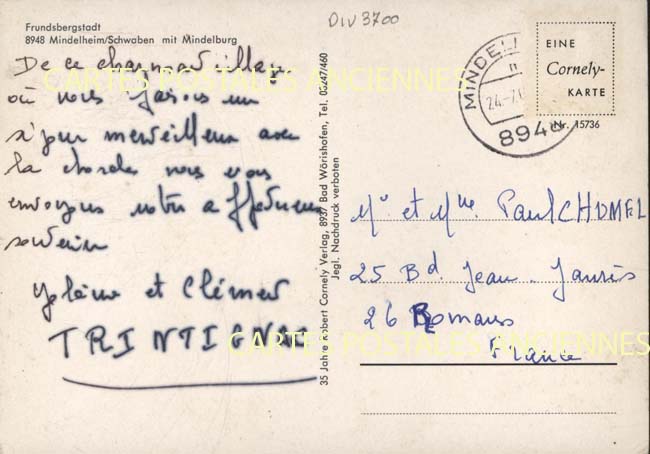 Frundsbergstadt
8948 Mindelheim/Schwaben mit Mindelburg
DIV 3700
De ce charmant village
où nous faisons un
séjour merveilleux avec
la chorale nous vous
envoyons notre affectueux
souvenir
et Clément
TRINTIGNAC
CARTES POSTALES ANCIENNES
35 Jahre Robert Cornely Verlag, 8937 Bad Wörishofen, Tel. 08247/460
Jegl. Nachdruck verboten
MINDEL
24.-7.
894
EINE
Cornely-
KARTE
Nr. 15736
Mr et Mme Paul CHOMEL
25 Bd. Jean Jaurès
26 Romans
France
CARTES POSTALES ANCIENNES